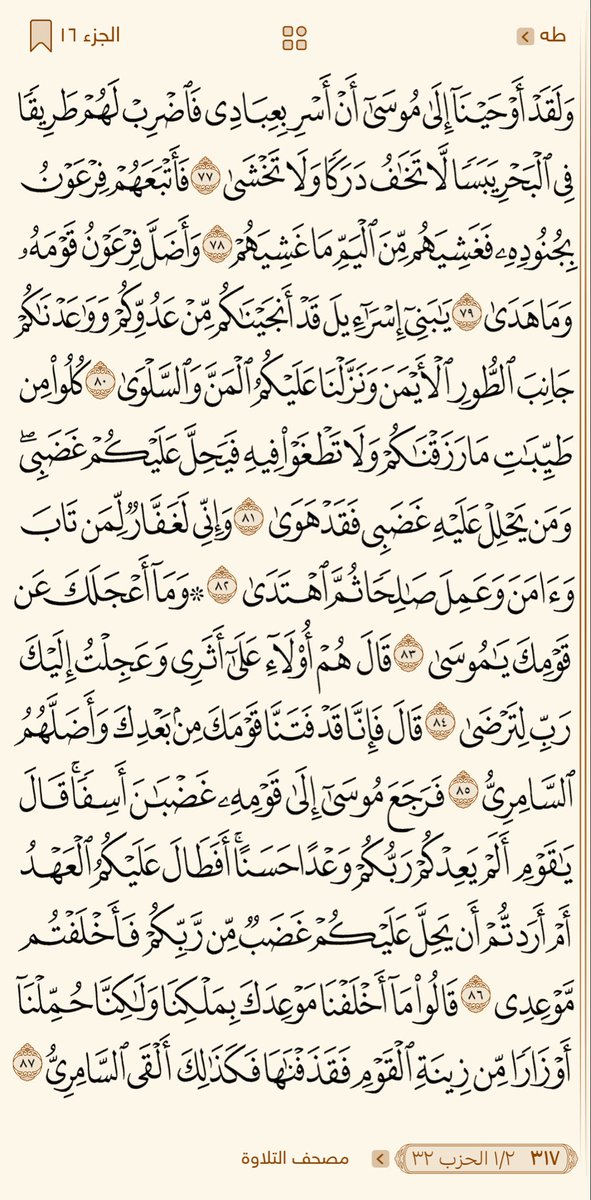 طه
الجزء ١٦
وَلَقَدْ أَوْحَيْنَآ إِلَىٰ مُوسَىٰٓ أَنْ أَسْرِ بِعِبَادِى فَٱضْرِبْ لَهُمْ طَرِيقًا
فِى ٱلْبَحْرِ يَبَسًا لَّا تَخَـٰفُ دَرَكًا وَلَا تَخْشَىٰ ٧٧ فَأَتْبَعَهُمْ فِرْعَوْنُ
بِجُنُودِهِۦ فَغَشِيَهُم مِّنَ ٱلْيَمِّ مَا غَشِيَهُمْ ٧٨ وَأَضَلَّ فِرْعَوْنُ قَوْمَهُۥ
وَمَا هَدَىٰ ٧٩ يَـٰبَنِىٓ إِسْرَٰٓءِيلَ قَدْ أَنجَيْنَـٰكُم مِّنْ عَدُوِّكُمْ وَوَٰعَدْنَـٰكُمْ
جَانِبَ ٱلطُّورِ ٱلْأَيْمَنَ وَنَزَّلْنَا عَلَيْكُمُ ٱلْمَنَّ وَٱلسَّلْوَىٰ ٨٠ كُلُوا۟ مِن
طَيِّبَـٰتِ مَا رَزَقْنَـٰكُمْ وَلَا تَطْغَوْا۟ فِيهِ فَيَحِلَّ عَلَيْكُمْ غَضَبِى ۖ
وَمَن يَحْلِلْ عَلَيْهِ غَضَبِى فَقَدْ هَوَىٰ ٨١ وَإِنِّى لَغَفَّارٌ لِّمَن تَابَ
وَءَامَنَ وَعَمِلَ صَـٰلِحًا ثُمَّ ٱهْتَدَىٰ ٨٢ ۞ وَمَآ أَعْجَلَكَ عَن
قَوْمِكَ يَـٰمُوسَىٰ ٨٣ قَالَ هُمْ أُو۟لَآءِ عَلَىٰٓ أَثَرِى وَعَجِلْتُ إِلَيْكَ
رَبِّ لِتَرْضَىٰ ٨٤ قَالَ فَإِنَّا قَدْ فَتَنَّا قَوْمَكَ مِنۢ بَعْدِكَ وَأَضَلَّهُمُ
ٱلسَّامِرِىُّ ٨٥ فَرَجَعَ مُوسَىٰٓ إِلَىٰ قَوْمِهِۦ غَضْبَـٰنَ أَسِفًا ۚ قَالَ
يَـٰقَوْمِ أَلَمْ يَعِدْكُمْ رَبُّكُمْ وَعْدًا حَسَنًا ۚ أَفَطَالَ عَلَيْكُمُ ٱلْعَهْدُ
أَمْ أَرَدتُّمْ أَن يَحِلَّ عَلَيْكُمْ غَضَبٌ مِّن رَّبِّكُمْ فَأَخْلَفْتُم
مَّوْعِدِى ٨٦ قَالُوا۟ مَآ أَخْلَفْنَا مَوْعِدَكَ بِمَلْكِنَا وَلَـٰكِنَّا حُمِّلْنَآ
أَوْزَارًا مِّن زِينَةِ ٱلْقَوْمِ فَقَذَفْنَـٰهَا فَكَذَٰلِكَ أَلْقَى ٱلسَّامِرِىُّ ٨٧
٣١٧ ١/٢ الحزب ٣٢
مصحف التلاوة